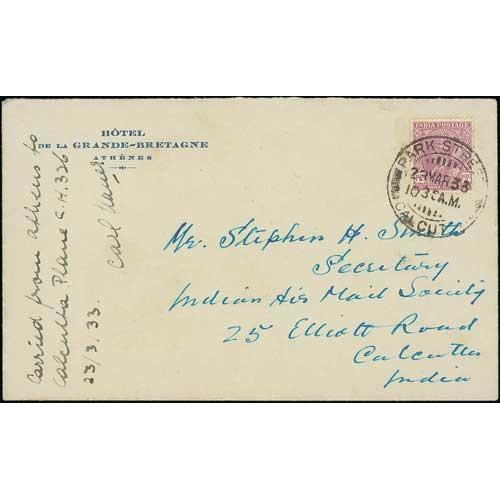 HÔTEL
DE LA GRANDE-BRETAGNE
ATHÈNES
INDIA POSTAGE
PARK STREET
23 MAR 33
10 35 A.M.
CALCUTTA
Mr. Stephen H. Smith
Secretary
Indian Air Mail Society
25 Elliott Road
Calcutta
India
Carried from Athens to
Calcutta Plane C.H. 326
23/3.33. Carl